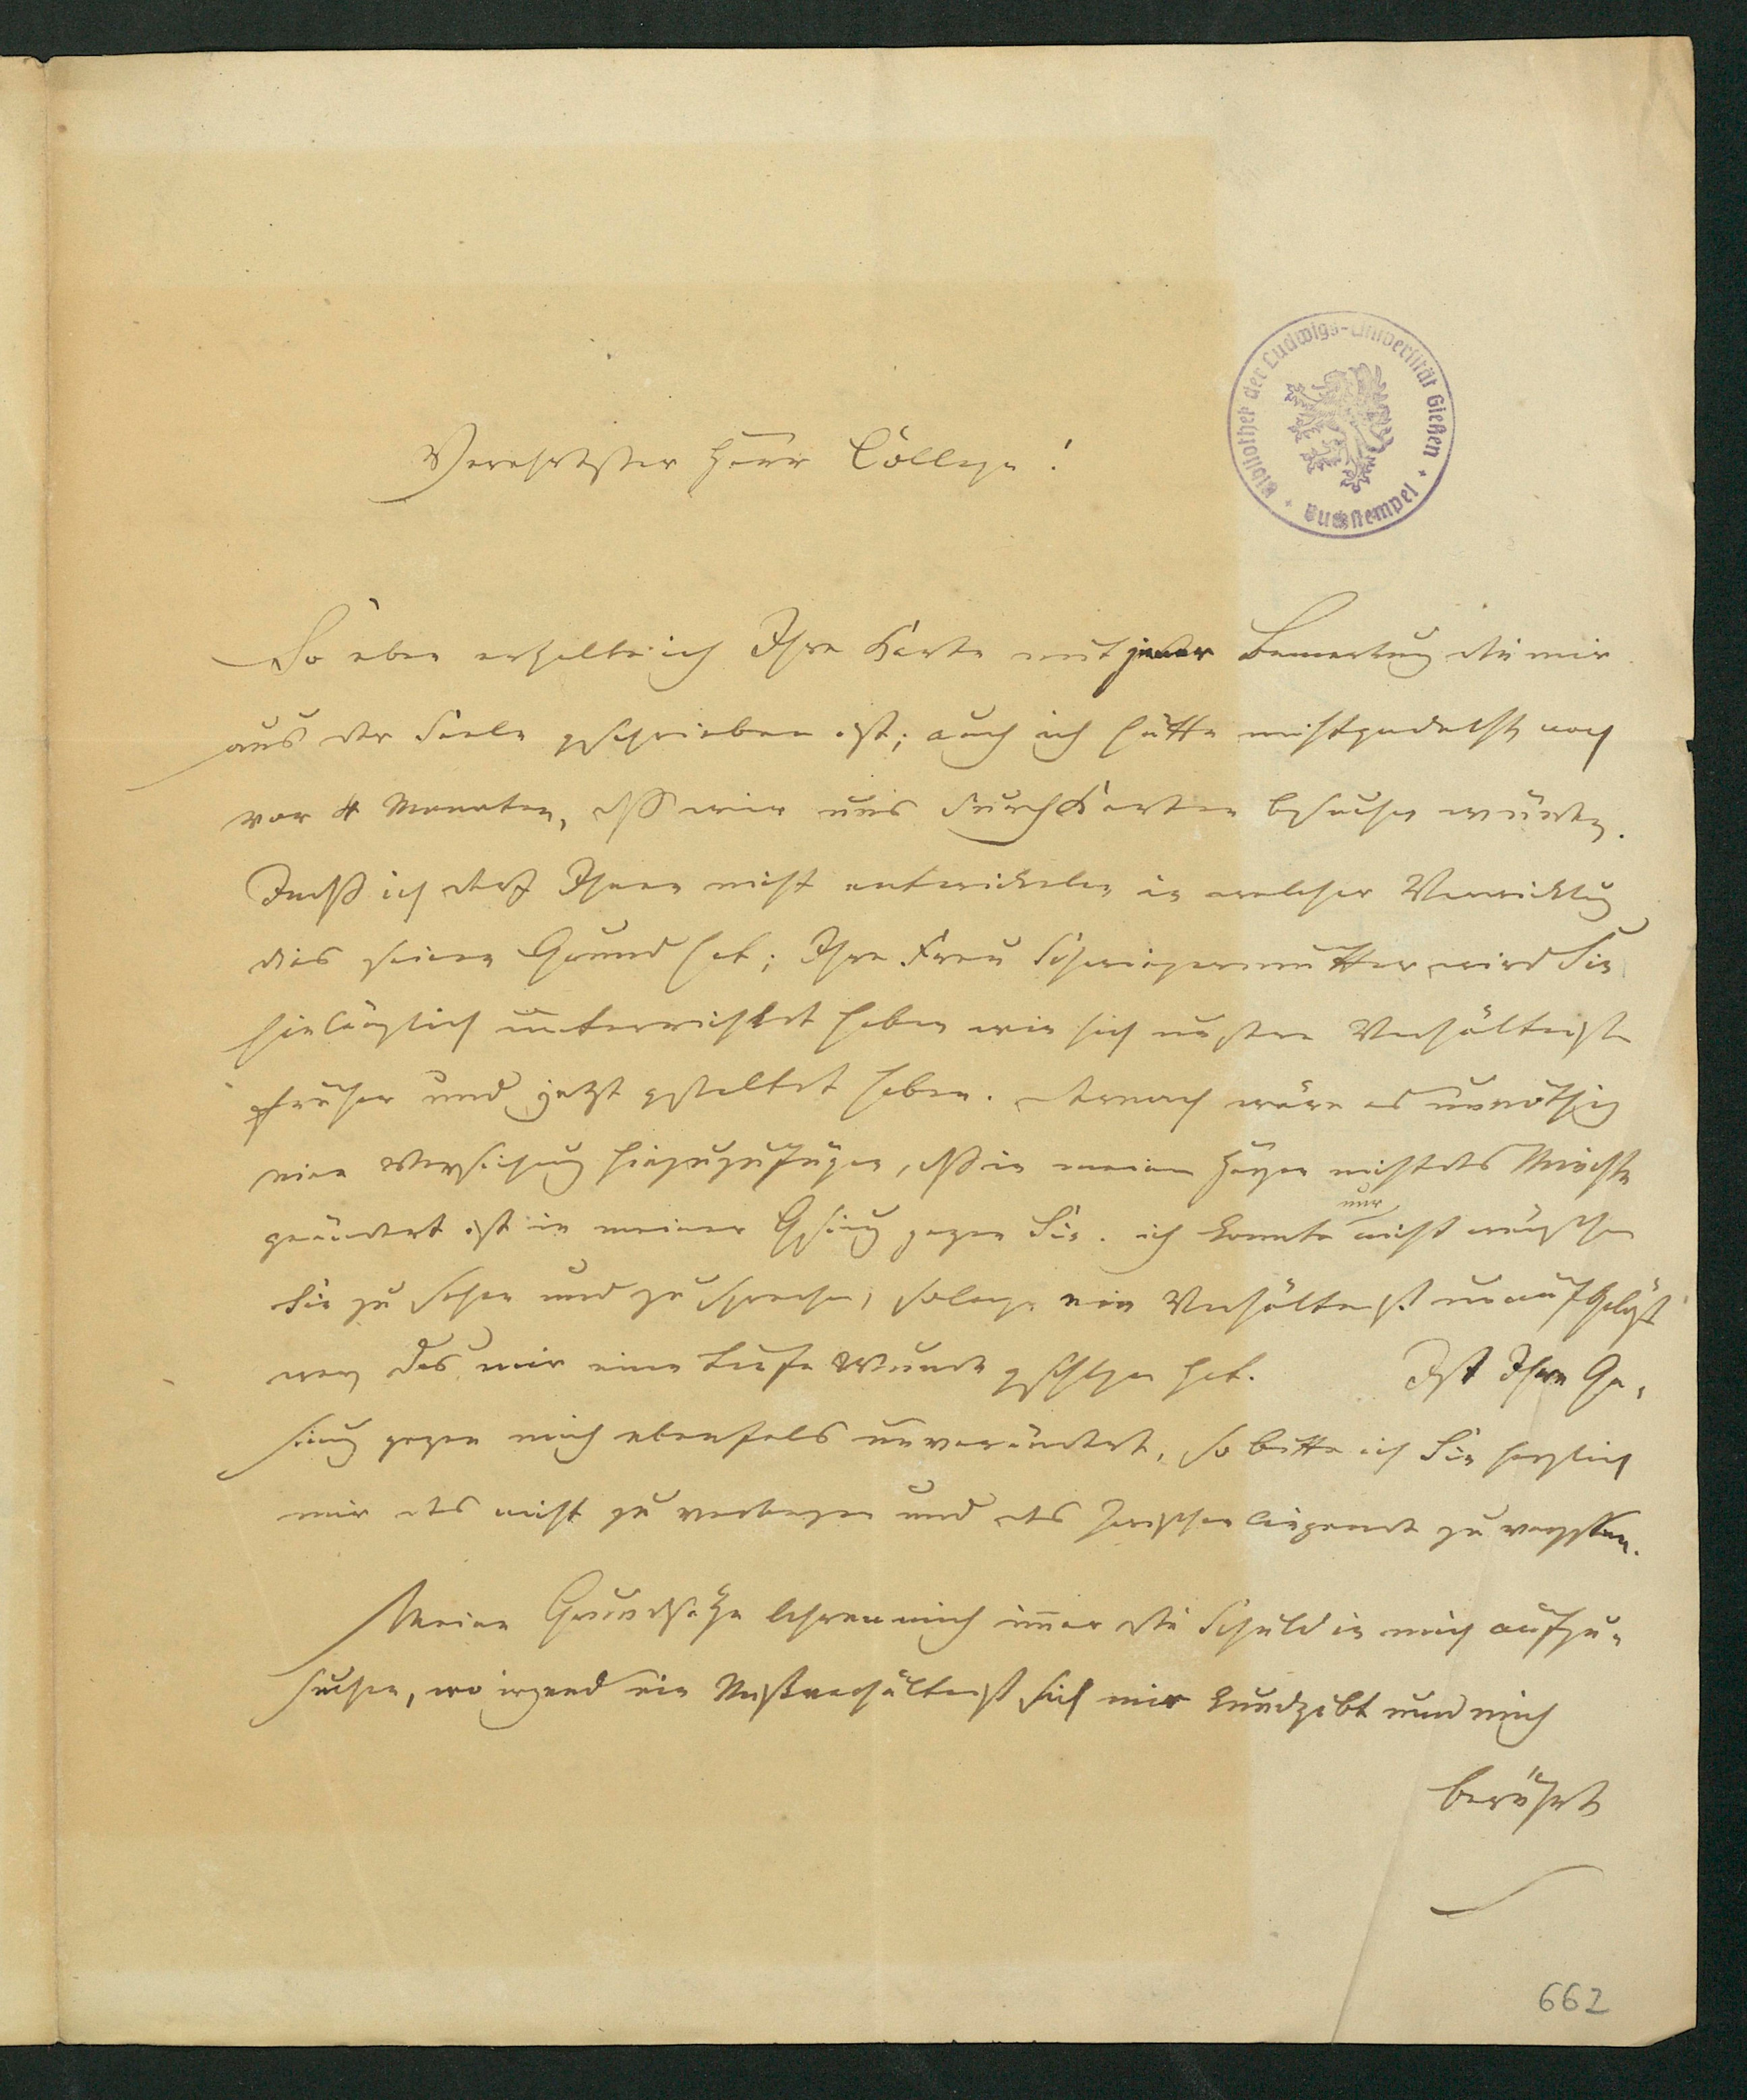 Bibliothek der Ludwigs-Universität Gießen
Buchstempel
Verehrtester Herr College!
So eben erhalte ich Ihre Karte mit jener Bemerkung die mir
aus der Seele geschrieben ist; auch ich hätte nicht gedacht noch
vor 4 Monaten, daß wir uns durch Karten besuchen würden.
Indeß ich darf Ihnen nicht entwickeln in welcher Verwicklung
dies seinen Grund hat; Ihre Frau Schwiegermutter wird Sie
hinlänglich unterrichtet haben wie sich unsere Verhältnisse
früher und jetzt gestaltet haben. Darnach wäre es unnöthig
eine Versicherung hinzuzufügen, daß in meinem Herzen nicht das Mindeste
geändert ist in meiner Gesinnung gegen Sie. ich konnte nur nicht wünschen
Sie zu sehen und zu sprechen, solange ein Verhältniß unaufgelößt
war das mir eine tiefe Wunde geschlagen hat. Ist Ihre Ge-
sinnung gegen mich ebenfalls unverändert, so bitte ich Sie herzlich
mir das nicht zu verbergen und das Zwischenliegende zu vergessen.
Meine Grundsätze lehren mich immer die Schuld in mich aufzu-
suchen, wo irgend ein Mißverhältniß sich mir kundgibt und mich
berührt
662